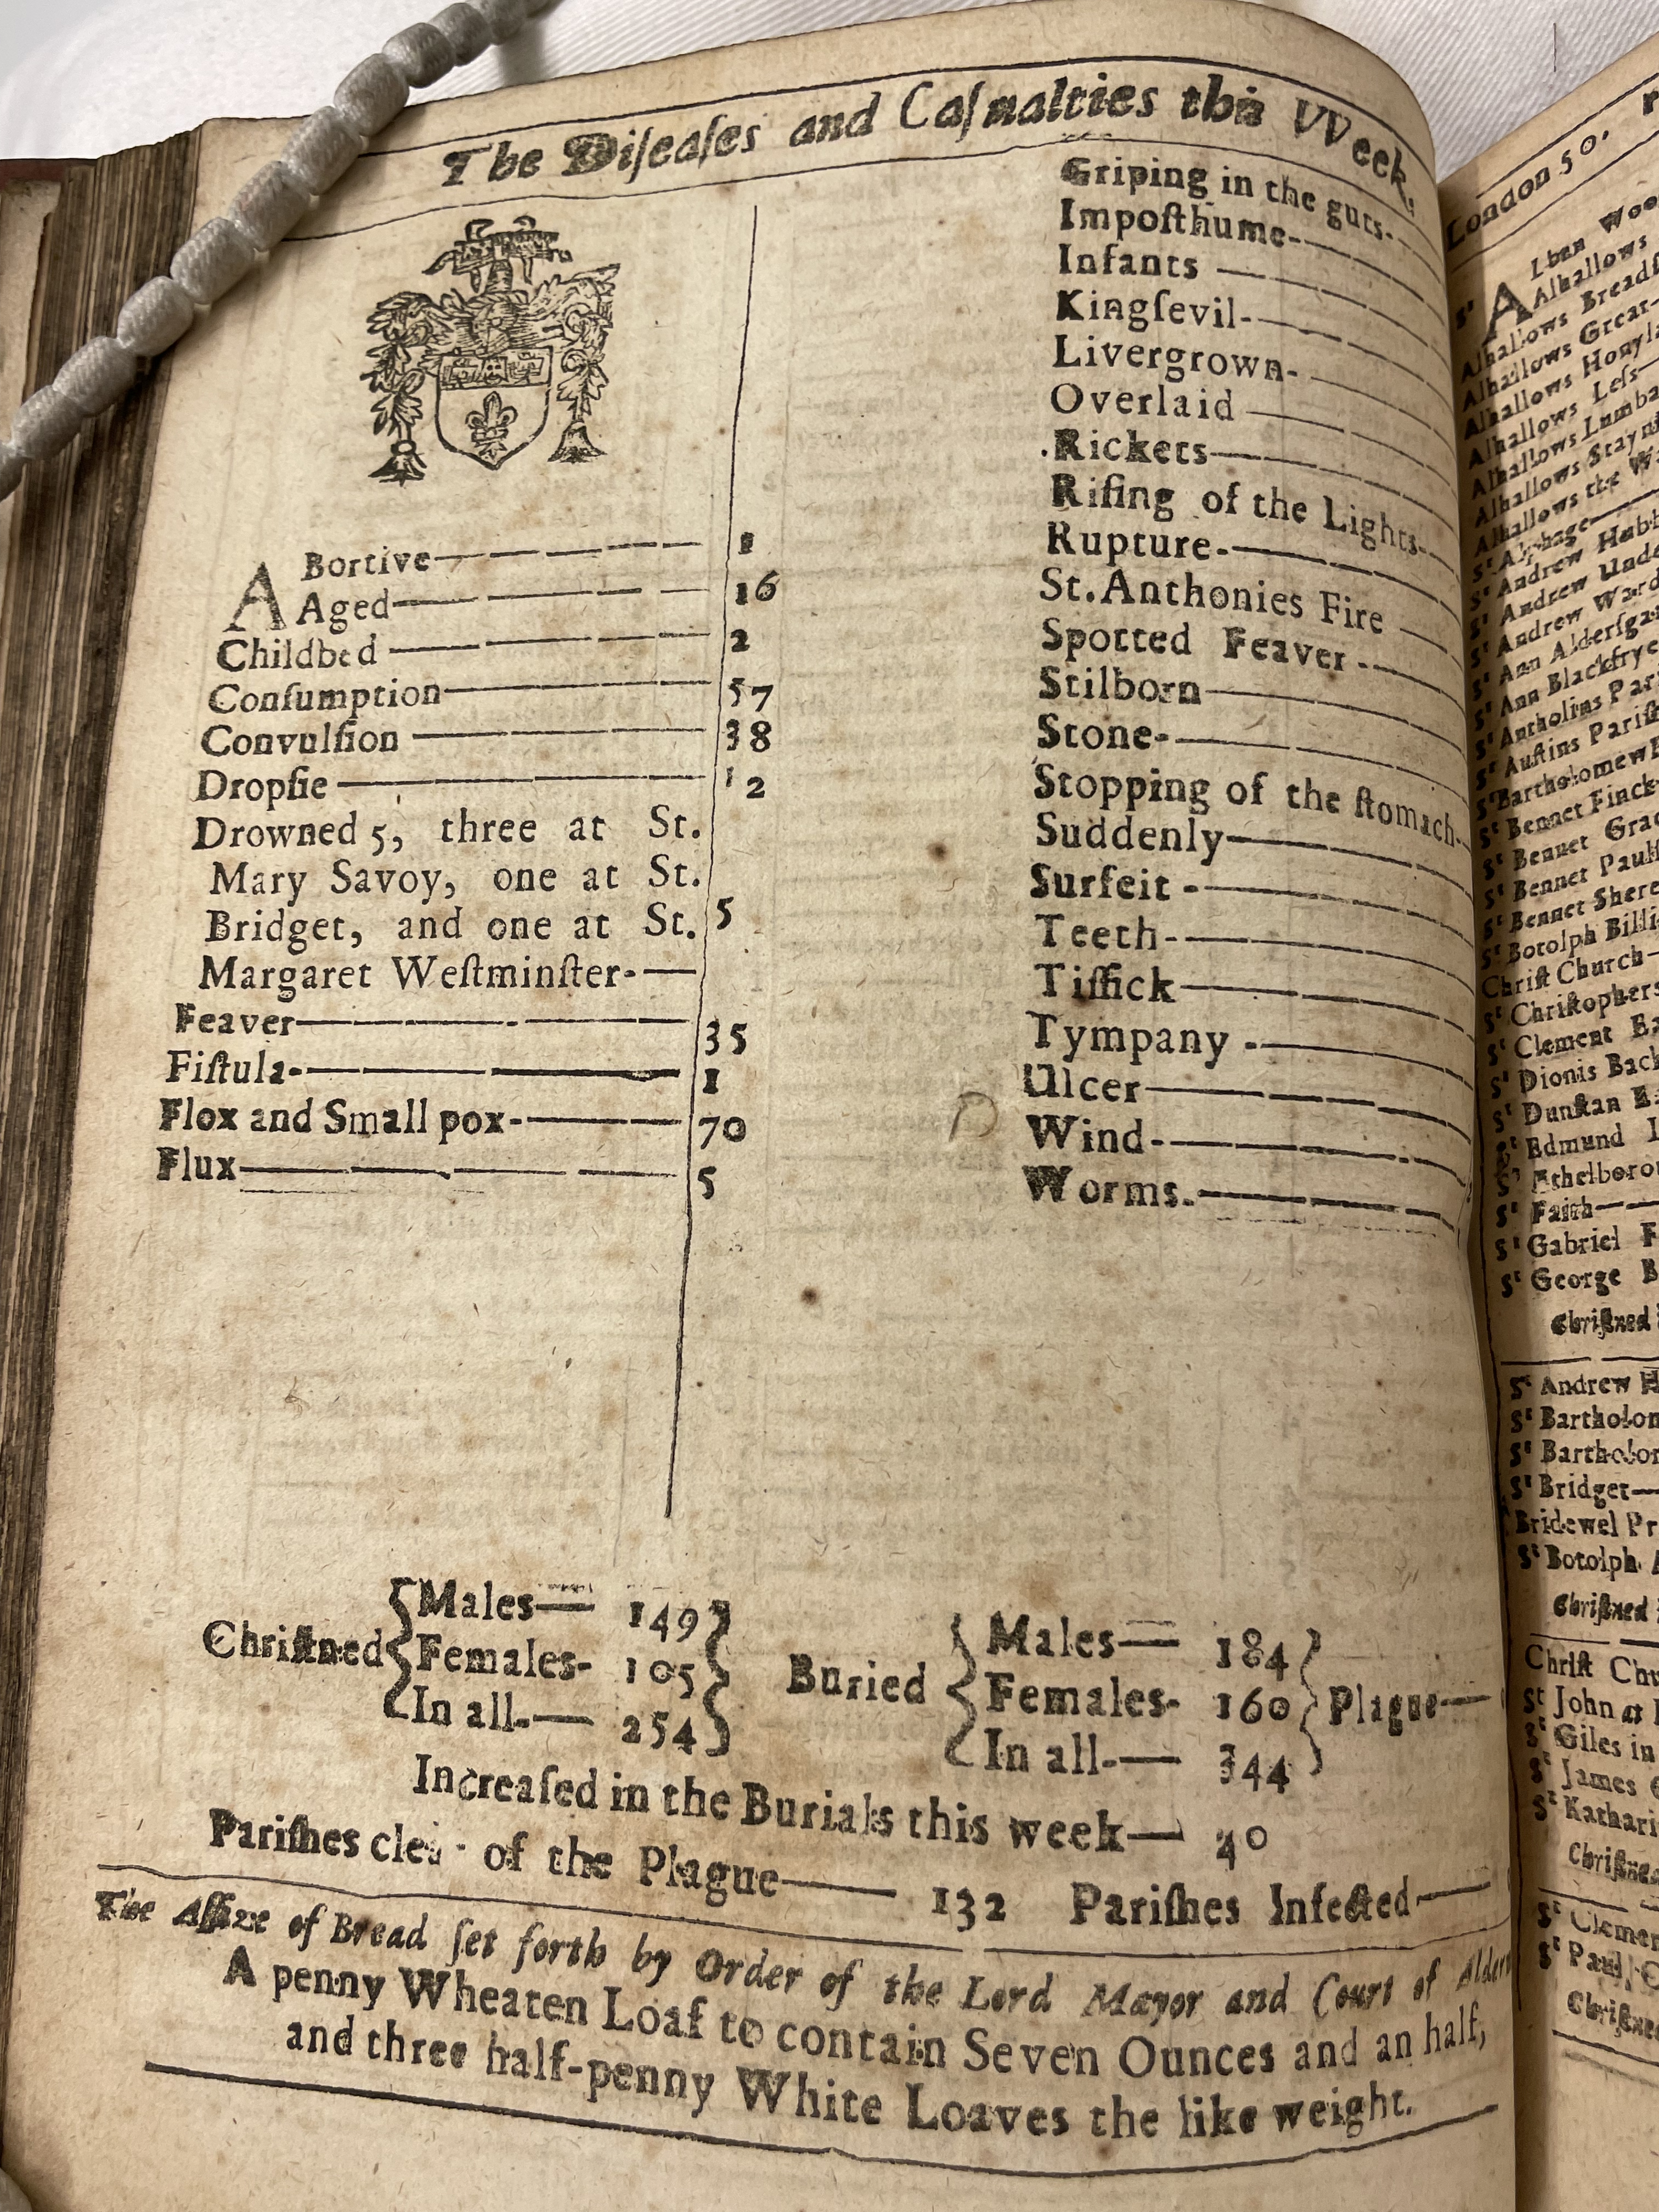 The Diſeaſes and Caſualties this VVeek.
ABortive 1
Aged 16
Childbed 2
Conſumption 57
Convulſion 38
Dropſie 12
Drowned 5, three at St.
Mary Savoy, one at St.
Bridget, and one at St. 5
Margaret Weſtminſter-
Feaver 35
Fiſtula- 1
Flox and Small pox- 70
Flux 5
Griping in the guts-
Impoſthume-
Infants
Kingſevil-
Livergrown-
Overlaid
Rickets
Riſing of the Lights-
Rupture-
St. Anthonies Fire
Spotted Feaver -
Stilborn
Stone-
Stopping of the ſtomach-
Suddenly
Surfeit -
Teeth-
Tiſſick
Tympany -
Ulcer
Wind-
Worms-
Chriſtned { Males— 149
Females- 105
In all-— 254 }
Buried { Males— 184
Females- 160
In all-— 344 } Plague—
Increaſed in the Burials this week— 40
Pariſhes clear of the Plague— 132 Pariſhes Infected—
The Aſſize of Bread ſet forth by Order of the Lord Mayor and Court of
A penny Wheaten Loaf to contain Seven Ounces and an half,
and three half-penny White Loaves the like weight.
London 50.
St Alban Woo
Alhallows
Alhallows Breadſ
Alhallows Great-
Alhallows Honyla
Alhallows Leſs—
Alhallows Lumba
Alhallows Stayni
Alhallows the Wa
St Alphage—
St Andrew Hubb
St Andrew Unde
St Andrew Ward
St Ann Alderſga
St Ann Blackfrye
St Antholins Par
St Auſtins Pariſh
St Bartholomew E
St Bennet Finck
St Bennet Grac
St Bennet Paulſ
St Bennet Shere
St Botolph Billi
Chriſt Church—
St Chriſtophers
St Clement Ea
St Dionis Back
St Dunſtan Ea
St Edmund L
St Ethelboroi
St Faith—
St Gabriel F
St George B
Chriſtned
St Andrew H
St Bartholom
St Bartholo
St Bridget—
Bridewel Pr
St Botolph A
Chriſtned
Chriſt Chu
St John at
St Giles in
St James C
St Kathari
Chriſtned
St Clemen
St Paul C
Chriſtned